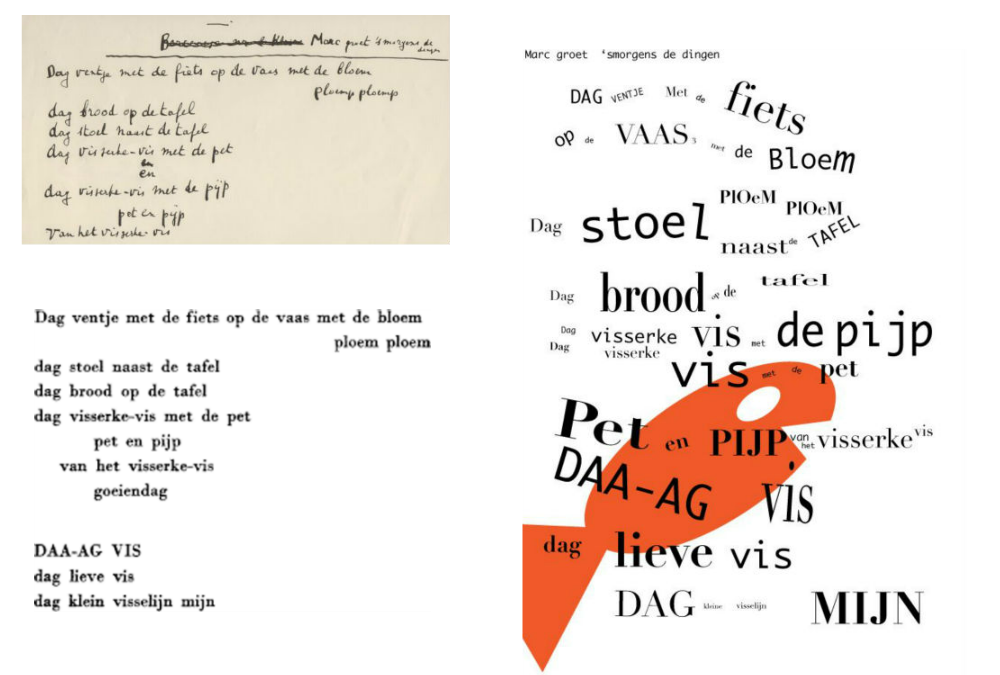 Marc groet 's morgens de dingen
Dag ventje met de fiets op de vaas met de bloem
ploemp ploemp
dag brood op de tafel
dag stoel naast de tafel
dag visserke-vis met de pet
en
dag visserke-vis met de pijp
pet en pijp
van het visserke-vis
Dag ventje met de fiets op de vaas met de bloem
ploem ploem
dag stoel naast de tafel
dag brood op de tafel
dag visserke-vis met de pet
pet en pijp
van het visserke-vis
goeiendag
DAA-AG VIS
dag lieve vis
dag klein visselijn mijn
Marc groet 'smorgens de dingen
DAG VENTJE Met de fiets
op de VAAS met de Bloem
PlOeM PlOeM
Dag stoel naast de TAFEL
Dag brood op de tafel
Dag visserke vis met de pijp
Dag visserke vis met de pet
Pet en PIJP van het visserke vis
DAA-AG VIS
dag lieve vis
DAG kleine visselijn MIJN